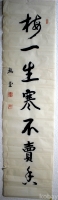 梅一生寒不賣香